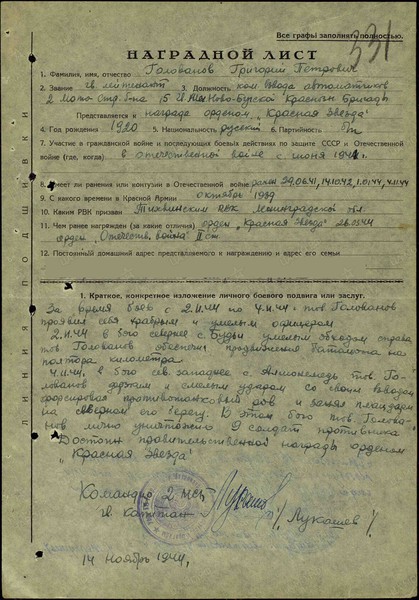 Все графы заполнять полностью.
531
НАГРАДНОЙ ЛИСТ
1. Фамилия, имя, отчество Голованов Григорий Петрович
2. Звание гв. лейтенант 3. Должность ком. взвода автоматчиков
2 мото стр. б-на 5 Ново-Бугской Красноз. Бригады
Представляется к награде орденом „Красная Звезда"
4. Год рождения 1920 5. Национальность русский 6. Партийность
7. Участие в гражданской войне и последующих боевых действиях по защите СССР и Отечественной
войне (где, когда) в отечественной войне с июня 1941 г.
8. Имеет ли ранения или контузии в Отечественной войне ранен 29.06.41, 14.10.42, 1.01.44, 4.11.44
9. С какого времени в Красной Армии октябрь 1939
10. Каким РВК призван Тихвинским РВК Ленинградской обл
11. Чем ранее награжден (за какие отличия) орден „Красная Звезда" 26.03.44
орден „Отечеств. война" II ст
12. Постоянный домашний адрес представляемого к награждению и адрес его семьи
ЛИНИЯ ПОДШИВКИ
1. Краткое, конкретное изложение личного боевого подвига или заслуг.
За время боев с 2.11.44 по 4.11.44 г. тов Голованов
проявил себя храбрым и умелым офицером
2.11.44 в бою севернее с Бугьи умелым обходом справа
тов Голованов обеспечил продвижение батальона на
полтора километра.
4.11.44 в бою сев. западнее с тов. Го-
лованов дерзким и смелым ударом со своим взводом
форсировал противотанковый ров и занял плацдарм
на северном его берегу. В этом бою тов Голова-
нов лично уничтожил 9 солдат противника
Достоин правительственной награды орденом
„Красная Звезда"
Командир 2 мсб
гв. капитан Лукашев
14 ноябрь 1944 г.